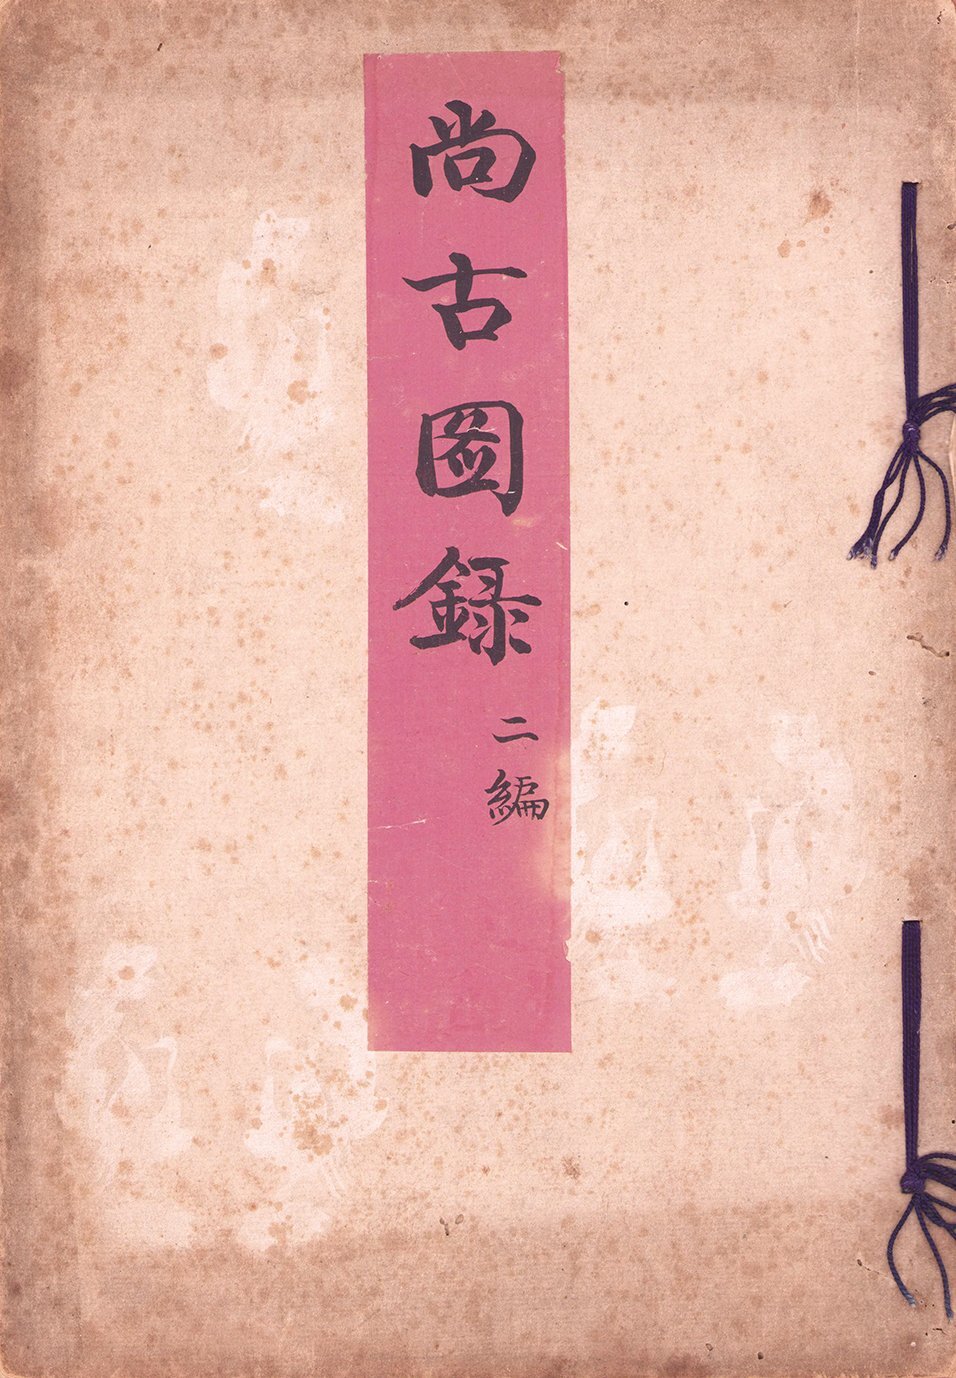 尚古圖録
二編